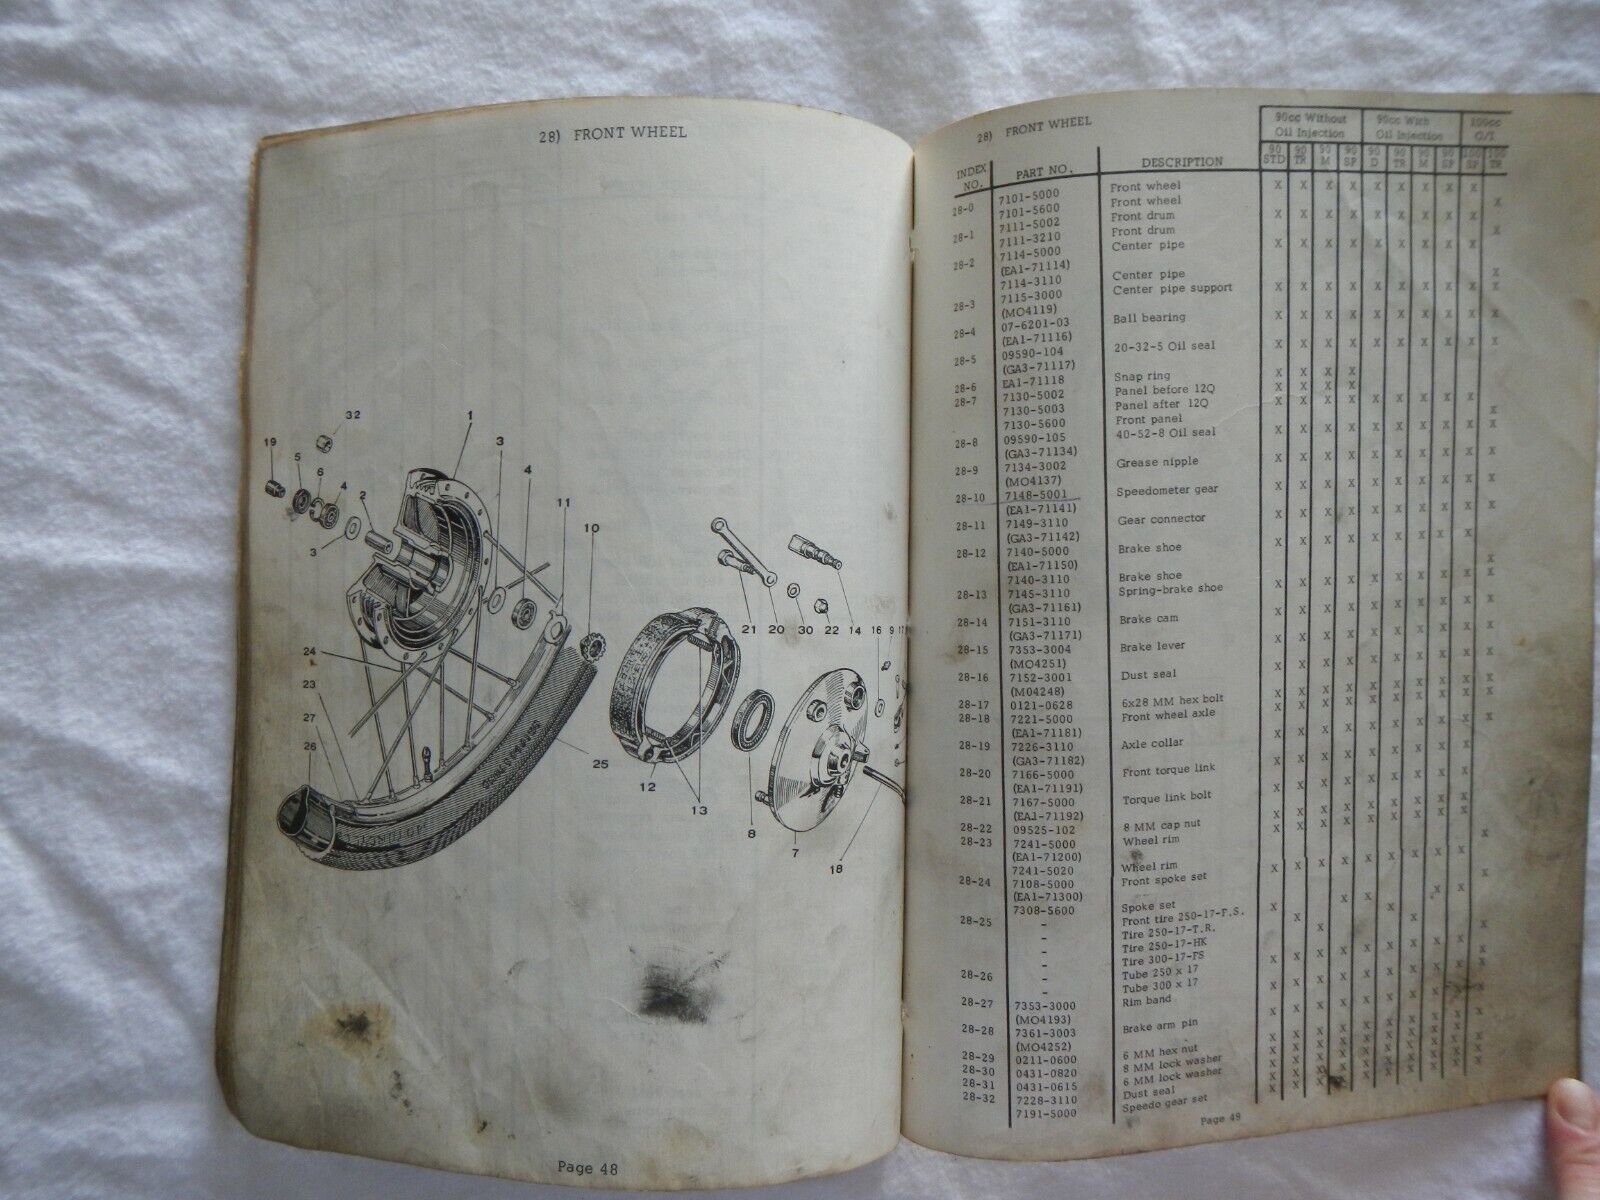 28) FRONT WHEEL
32
1
19
3
5
6
4
4
2
11
10
3
21
20
30
22
14
16
9
24
23
27
26
25
12
13
8
7
18
Page 48
28) FRONT WHEEL
90cc Without Oil Injection
90cc With Oil Injection
100cc O/I
INDEX NO. PART NO. DESCRIPTION 90 STD 90 TR 90 M 90 SP 90 D 90 TR 90 M 90 SP 100 SP 100 TR
28-0 7101-5000 Front wheel X X X X X X X X X
7101-5600 Front wheel X
28-1 7111-5002 Front drum X X X X X X X X X
7111-3210 Front drum X
28-2 7114-5000 Center pipe X X X X X X X X X
(EA1-71114)
7114-3110 Center pipe X
28-3 7115-3000 Center pipe support X X X X X X X X X X
(MO4119)
28-4 07-6201-03 Ball bearing X X X X X X X X X X
(EA1-71116)
28-5 09590-104 20-32-5 Oil seal X X X X X X X X X X
(GA3-71117)
28-6 EA1-71118 Snap ring X X X X
28-7 7130-5002 Panel before 12Q X X X X
7130-5003 Panel after 12Q X X X X X X X X X
7130-5600 Front panel X
28-8 09590-105 40-52-8 Oil seal X X X X X X X X X X
(GA3-71134)
28-9 7134-3002 Grease nipple X X X X X X X X X X
(MO4137)
28-10 7148-5001 Speedometer gear X X X X X X X X X X
(EA1-71141)
28-11 7149-3110 Gear connector X X X X X X X X X X
(GA3-71142)
28-12 7140-5000 Brake shoe X X X X X X X X X
(EA1-71150)
7140-3110 Brake shoe X
28-13 7145-3110 Spring-brake shoe X X X X X X X X X X
(GA3-71161)
28-14 7151-3110 Brake cam X X X X X X X X X X
(GA3-71171)
28-15 7353-3004 Brake lever X X X X X X X X X X
(MO4251)
28-16 7152-3001 Dust seal X X X X X X X X X X
(M04248)
28-17 0121-0628 6x28 MM hex bolt X X X X X X X X X X
28-18 7221-5000 Front wheel axle X X X X X X X X X X
(EA1-71181)
28-19 7226-3110 Axle collar X X X X X X X X X X
(GA3-71182)
28-20 7166-5000 Front torque link X X X X X X X X X
(EA1-71191)
28-21 7167-5000 Torque link bolt X X X X X X X X X
(EA1-71192)
28-22 09525-102 8 MM cap nut X X X X X X X X X
28-23 7241-5000 Wheel rim X X X X X X X X X
(EA1-71200)
7241-5020 Wheel rim X
28-24 7108-5000 Front spoke set X X X X X X X X X
(EA1-71300)
7308-5600 Spoke set X
28-25 - Front tire 250-17-F.S.
- Tire 250-17-T.R.
- Tire 250-17-HK
- Tire 300-17-FS
28-26 - Tube 250 x 17
- Tube 300 x 17
28-27 7353-3000 Rim band
(MO4193)
28-28 7361-3003 Brake arm pin
(MO4252)
28-29 0211-0600 6 MM hex nut
28-30 0431-0820 8 MM lock washer
28-31 0431-0615 6 MM lock washer
28-32 7228-3110 Dust seal
7191-5000 Speedo gear set
Page 49